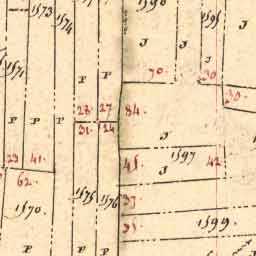 1573
1574
1590
1595
J
J
J
J
1571
P
P
70.
30
30.
28
27
84.
P
P
P
P
P
31.
24
J
23
41.
45.
1597
42
J
62.
1575
1576
37
1570.
35
1599
P
P
P